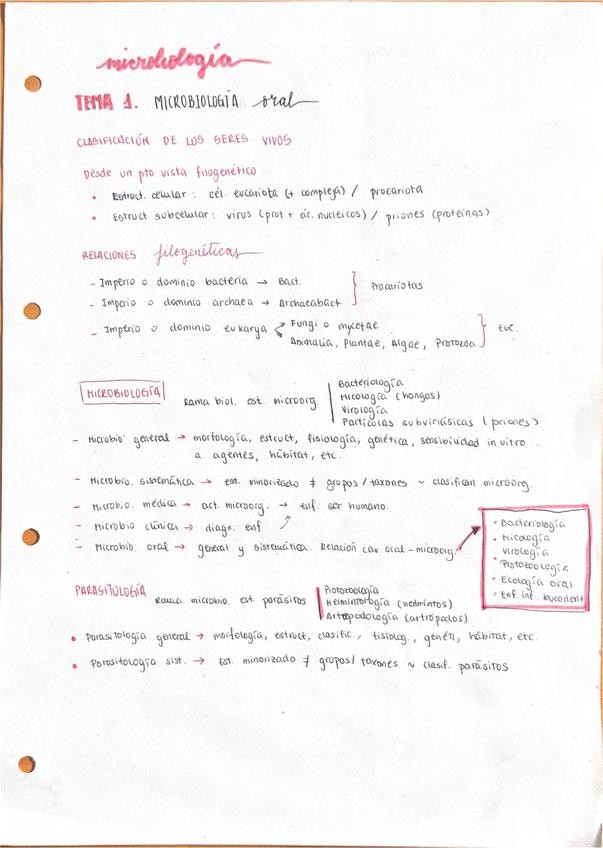 microbiología
TEMA 1. MICROBIOLOGÍA oral
CLASIFICACIÓN DE LOS SERES VIVOS
Desde un pto vista filogenético
• Estruct. celular: cél. eucariota (+ compleja) / procariota
• Estruct. subcelular: virus (prot + ác. nucleicos) / priones (proteínas)
RELACIONES filogenéticas
- Imperio o dominio bacteria → Bact.
- Imperio o dominio archaea → Archaeabact
Procariotas
- Imperio o dominio eukarya
Fungi o mycetae
Animalia, Plantae, Algae, Protozoa
Euc.
MICROBIOLOGÍA
Rama biol. est. microorg.
Bacteriología
Micología (hongos)
Virología
Partículas subvirásicas (priones)
- Microbio general → morfología, estruct, fisiología, genética, sensibilidad in vitro
a agentes, hábitat, etc.
- Microbio. sistemática → est. minorizado ≠ grupos/taxones ~ clasifican microorg.
- Microbio. médica → act. microorg. → enf. ser humano.
- Microbio clínica → diagn. enf
- Microbio. oral → general y sistemática. Relación cav. oral - microorg.
• Bacteriología
• Micología
• Virología
• Protozoología
• Ecología oral
• Enf. inf. bucodent
PARASITOLOGÍA
Rama microbio. est parásitos
Protozoología
Helmintología (helmintos)
Artopodología (artrópodos)
• Parasitología general → morfología, estruct, clasific., fisiolog., genéti, hábitat, etc.
• Parasitología sist. → Est. minorizado ≠ grupos/taxones ~ clasif. parásitos